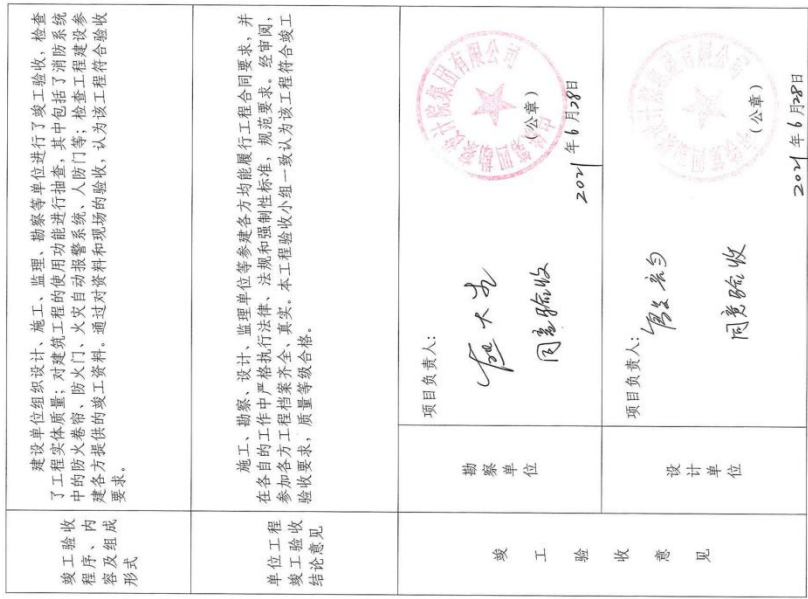 竣工验收
程序、内
容及组成
形式
建设单位组织设计、施工、监理、勘察等单位进行了竣工验收，检查
了工程实体质量；对建筑工程的使用功能进行抽查，其中包括了消防系统
中的防火卷帘、防火门、火灾自动报警系统、人防门等；检查工程建设参
建各方提供的竣工资料。通过对资料和现场的验收，认为该工程符合验收
要求。
单位工程
竣工验收
结论意见
施工、勘察、设计、监理单位等参建各方均能履行工程合同要求，并
在各自的工作中严格执行法律、法规和强制性标准，规范要求。经审阅，
参加各方工程档案齐全、真实。本工程验收小组一致认为该工程符合竣工
验收要求，质量等级合格。
竣工验收意见
勘察单位
项目负责人：
同意验收
（公章）
2021年6月28日
设计单位
项目负责人：
同意验收
（公章）
2021年6月28日